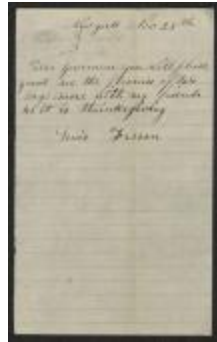 Nov 25th
Dear Governor you will please
grant me the promise of
one more with my friends
as it is thanksgiving
Miss